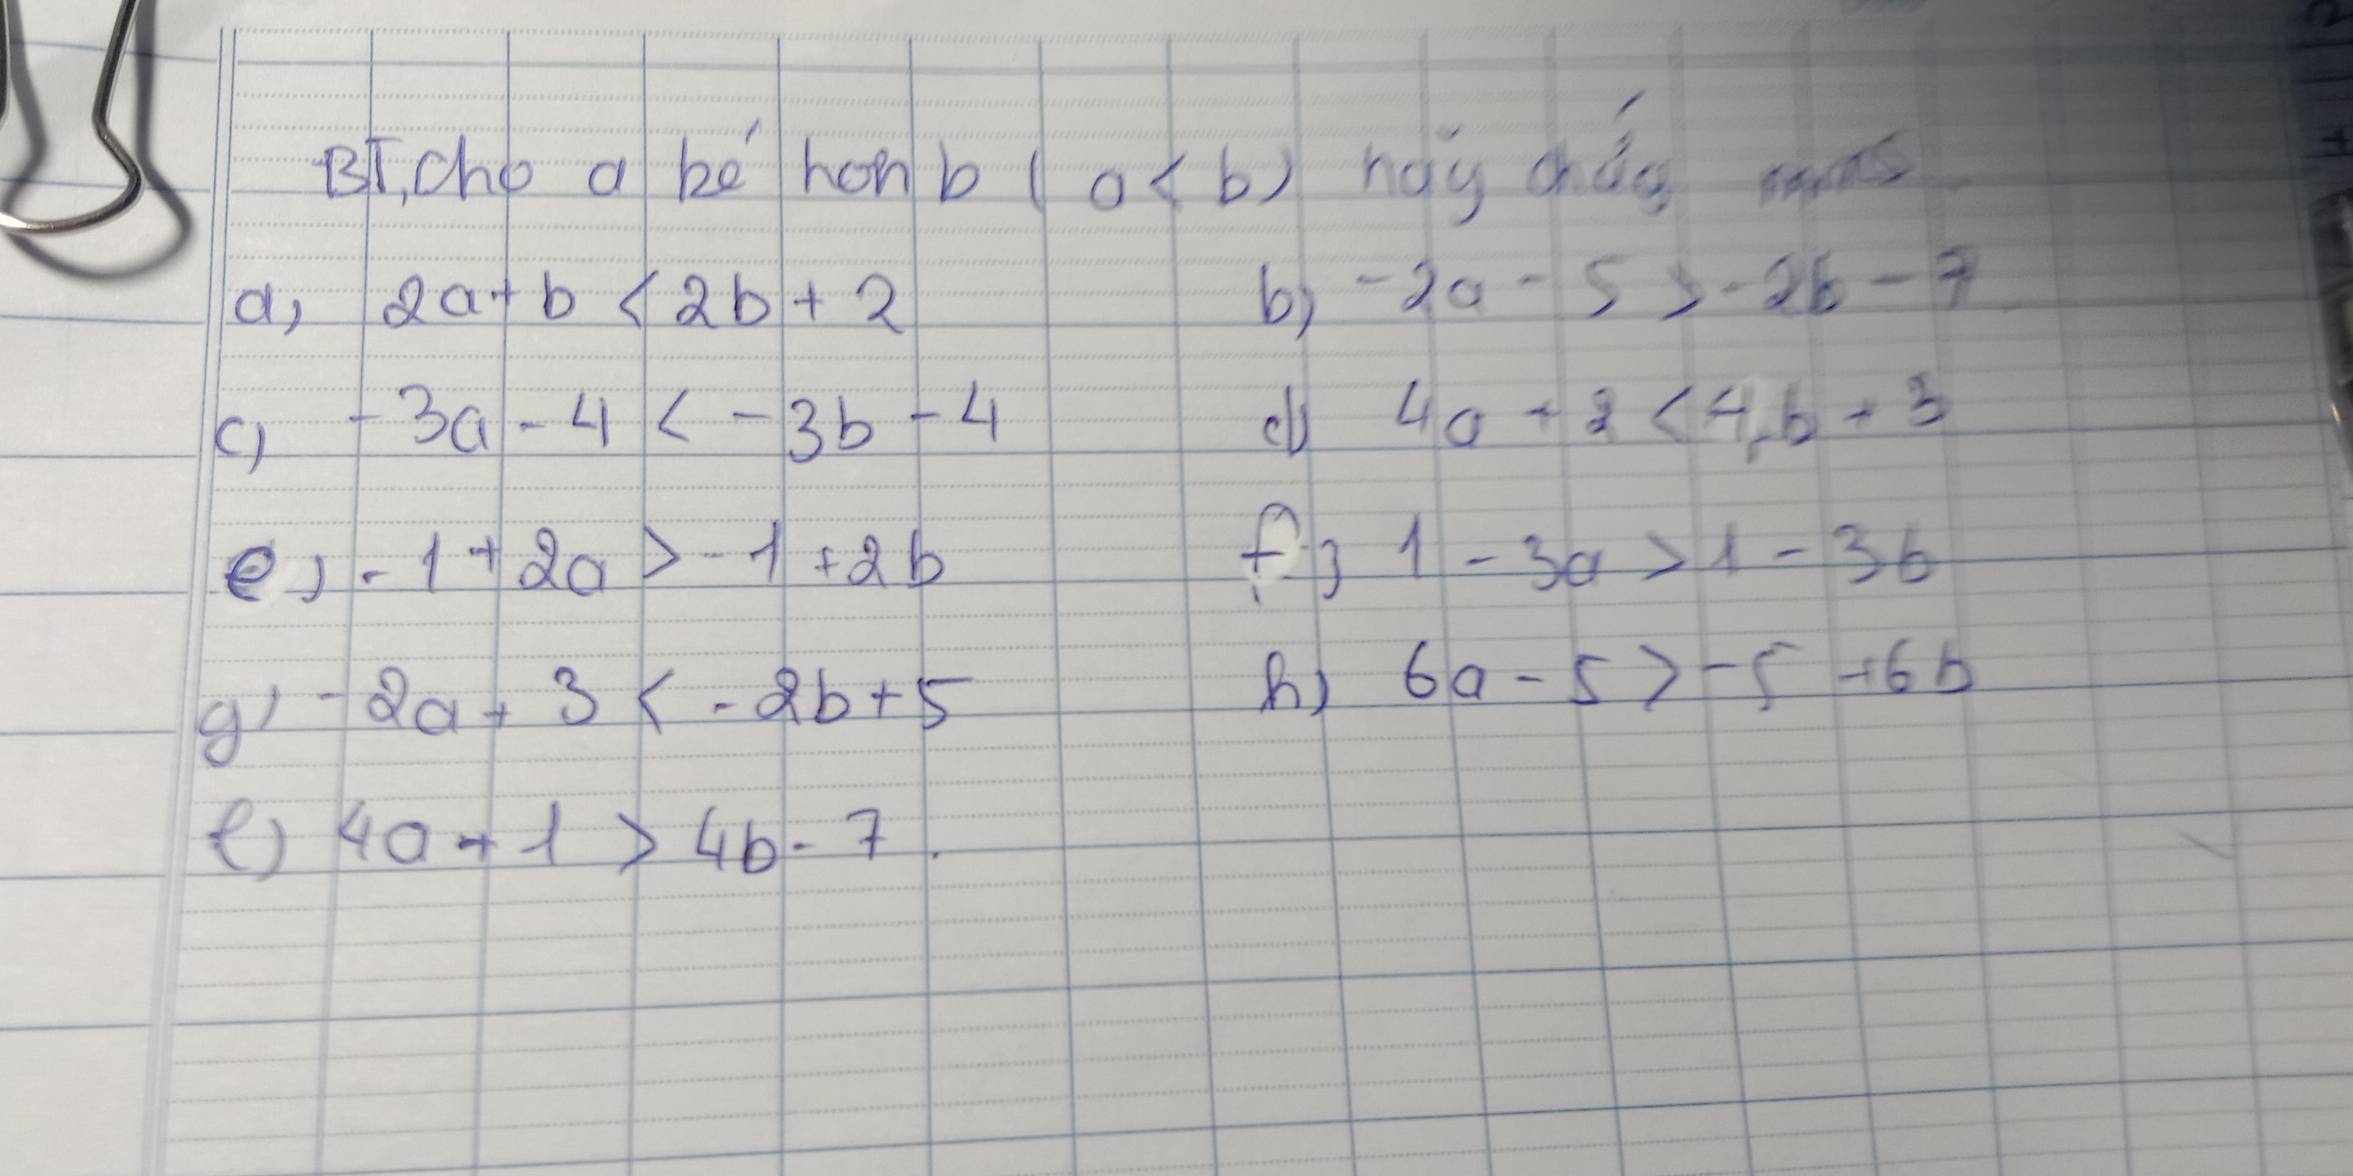 BT, Cho a bé hơn b ( a < b ) hãy chứng
a, 2a + b < 2b + 2 b, -2a - 5 > -2b - 7
c) -3a - 4 < -3b - 4 d) 4a + 2 < 4b + 3
e) -1 + 2a > -1 + 2b f) 1 - 3a > 1 - 3b
g) -2a + 3 < -2b + 5 h) 6a - 5 > -5 + 6b
l) 4a + 1 > 4b - 7.